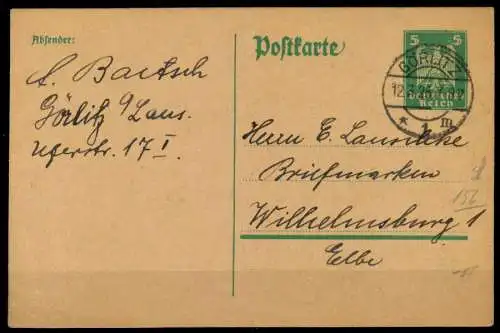 Absender:
A. Bartsch
Görlitz / Laus.
Uferstr. 17 I.
Postkarte
5 5
Deutsches
Reich
GÖRLITZ
* 1 m
Herrn E.
Briefmarken
Wilhelmsburg 1
Elbe
156